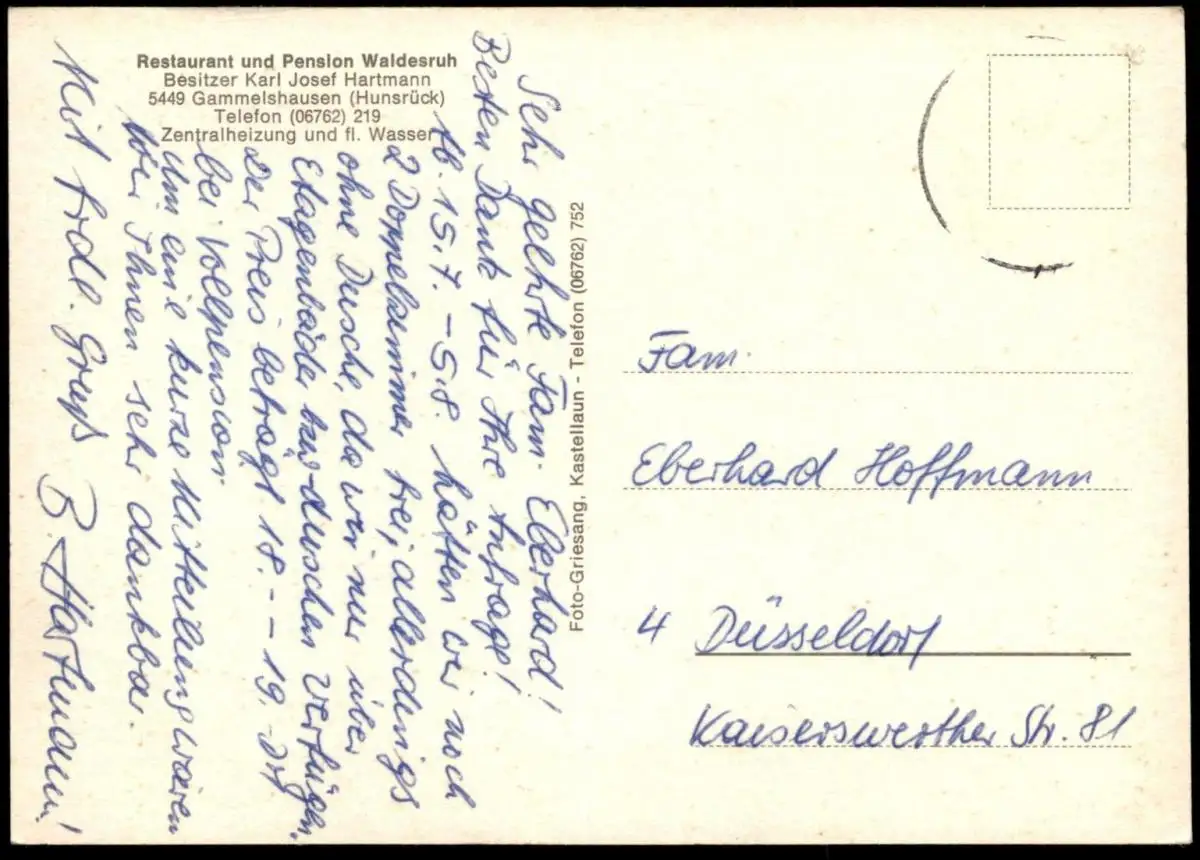 Restaurant und Pension Waldesruh
Besitzer Karl Josef Hartmann
5449 Gammelshausen (Hunsrück)
Telefon (06762) 219
Zentralheizung und fl. Wasser
Sehr geehrte Fam. Eberhard!
Besten Dank für Ihre Anfrage!
Ab. 15.7. - 5.8. hätten wir noch
2 Doppelzimmer frei, allerdings
ohne Dusche, da wir nur über
Etagenbäder bzw-duschen verfügen.
Der Preis beträgt 18.- - 19.- DM
bei Vollpension.
Um eine kurze Mitteilung wären
wir Ihnen sehr dankbar.
Mit frdl. Gruß B. Hartmann!
Foto-Griesang, Kastellaun - Telefon (06762) 752
Fam.
Eberhard Hoffmann
4 Düsseldorf
Kaiserswerther Str. 81